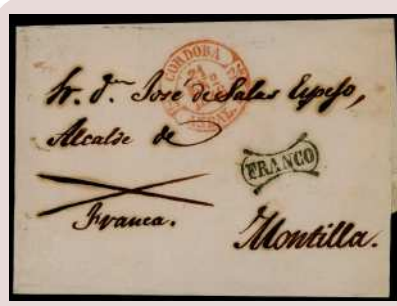 CORDOBA
Sr. Dn. José de Salas Espejo,
Alcalde de
FRANCO
Franca.
Montilla.